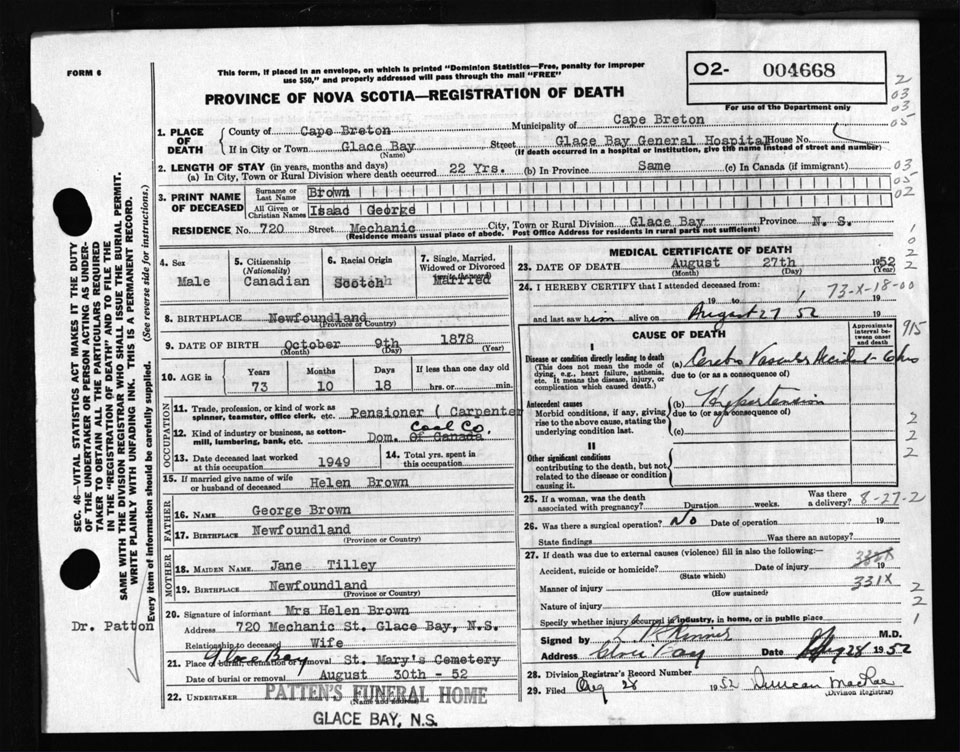 FORM 6
This form, if placed in an envelope, on which is printed "Dominion Statistics—Free, penalty for improper
use $50," and properly addressed will pass through the mail "FREE"
O2- 004668
For use of the Department only
PROVINCE OF NOVA SCOTIA—REGISTRATION OF DEATH
2
03
03
05
1. PLACE OF DEATH
County of Cape Breton Municipality of Cape Breton
If in City or Town Glace Bay Street Glace Bay General Hospital House No.
(Name) (If death occurred in a hospital or institution, give the name instead of street and number)
2. LENGTH OF STAY (in years, months and days)
(a) In City, Town or Rural Division where death occurred 22 Yrs. (b) In Province Same (c) In Canada (if immigrant)
03
05
02
3. PRINT NAME OF DECEASED
Surname or Last Name Brown
All Given or Christian Names Isaac George
RESIDENCE No. 720 Street Mechanic City, Town or Rural Division Glace Bay Province N. S.
(Residence means usual place of abode. Post Office Address for residents in rural parts not sufficient)
4. Sex
Male
5. Citizenship (Nationality)
Canadian
6. Racial Origin
Scotch
7. Single, Married, Widowed or Divorced
Married
8. BIRTHPLACE Newfoundland
(Province or Country)
9. DATE OF BIRTH October 9th 1878
(Month) (Day) (Year)
10. AGE in Years Months Days If less than one day old
73 10 18 hrs. or min.
OCCUPATION
11. Trade, profession, or kind of work as spinner, teamster, office clerk, etc. Pensioner ( Carpenter
12. Kind of industry or business, as cotton-mill, lumbering, bank, etc. Dom. Of Canada Coal Co.
13. Date deceased last worked at this occupation 1949
14. Total yrs. spent in this occupation
15. If married give name of wife or husband of deceased Helen Brown
FATHER
16. NAME George Brown
17. BIRTHPLACE Newfoundland
(Province or Country)
MOTHER
18. MAIDEN NAME Jane Tilley
19. BIRTHPLACE Newfoundland
(Province or Country)
20. Signature of informant Mrs Helen Brown
Address 720 Mechanic St. Glace Bay, N.S.
Relationship to deceased Wife
Glace Bay
21. Place of burial, cremation or removal St. Mary's Cemetery
Date of burial or removal August 30th - 52
22. UNDERTAKER PATTEN'S FUNERAL HOME
(Name and address)
GLACE BAY, N.S.
MEDICAL CERTIFICATE OF DEATH
23. DATE OF DEATH August 27th 1952
(Month) (Day) (Year)
24. I HEREBY CERTIFY that I attended deceased from:
73-X-18-00
19 to 19
and last saw him alive on August 27 52 19
CAUSE OF DEATH
Approximate interval between onset and death
915
I
Disease or condition directly leading to death
(This does not mean the mode of dying, e.g., heart failure, asthenia, etc. It means the disease, injury, or complication which caused death.)
(a) Cerebro Vascular Accident
due to (or as a consequence of)
Antecedent causes
Morbid conditions, if any, giving rise to the above cause, stating the underlying condition last.
(b) Hypertension
due to (or as a consequence of)
(c)
II
Other significant conditions
contributing to the death, but not related to the disease or condition causing it.
25. If a woman, was the death associated with pregnancy? Duration weeks. Was there a delivery? 8-27-2
26. Was there surgical operation? No Date of operation 19
State findings Was there an autopsy?
27. If death was due to external causes (violence) fill in also the following:—
Accident, suicide or homicide? Date of injury 19
(State which)
Manner of injury 331X
(How sustained)
Nature of injury
Specify whether injury occurred in industry, in home, or in public place
Signed by M.D.
Address Glace Bay Date Aug 28 1952
28. Division Registrar's Record Number
29. Filed Aug 28 1952 Duncan MacRae
(Division Registrar)
SEC. 46—VITAL STATISTICS ACT MAKES IT THE DUTY
OF THE UNDERTAKER OR PERSON ACTING AS UNDER-
TAKER TO OBTAIN ALL THE PARTICULARS REQUIRED
IN THE "REGISTRATION OF DEATH" AND TO FILE THE
SAME WITH THE DIVISION REGISTRAR WHO SHALL ISSUE THE BURIAL PERMIT.
WRITE PLAINLY WITH UNFADING INK. THIS IS A PERMANENT RECORD.
Every item of information should be carefully supplied. (See reverse side for instructions.)
Dr. Patton